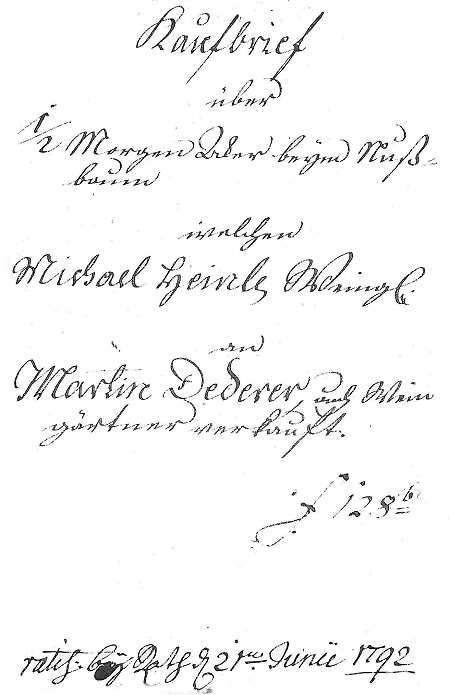 Kaufbrief
über
1/2 Morgen Aker beym Nuß-
baum
welchen
Michael Heinle Weingl.
an
Martin Dederer, auch Wein
gärtner verkauft.
f 128
ratif. bey Rath d. 21ten Junii 1792